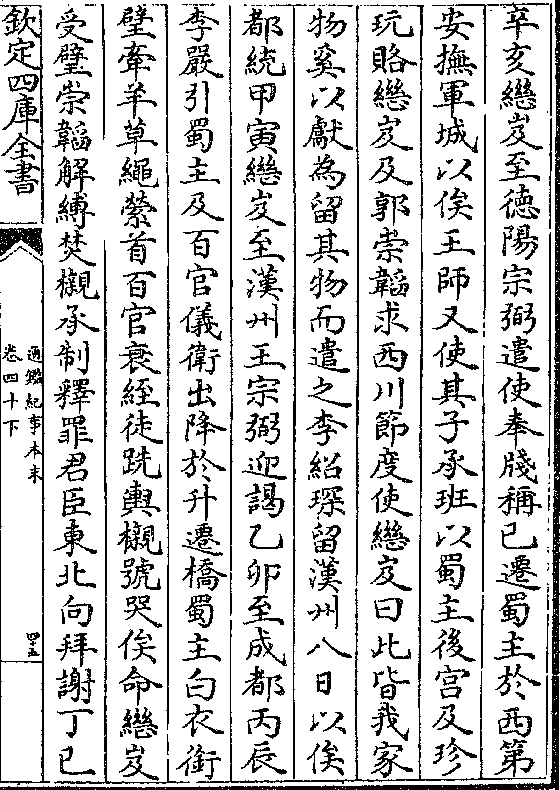 辛亥繼岌至德陽宗弼遣使奉牋稱已遷蜀主於西第
安撫軍城以俟王師又使其子承班以蜀主後宮及珍
玩賂繼岌及郭崇韜求西川節度使繼岌曰此皆我家
物奚以獻為留其物而遣之李紹琛留漢州八日以俟
都統甲寅繼岌至漢州王宗弼迎謁乙卯至成都丙辰
李嚴引蜀主及百官儀衛出降於升遷橋蜀主白衣銜
璧牽羊草繩縈首百官衰絰徒跣輿櫬號哭俟命繼岌
受璧崇韜解縛焚櫬承制釋罪君臣東北向拜謝丁巳
欽定四庫全書
通鑑紀事本末
卷四十下
四十五